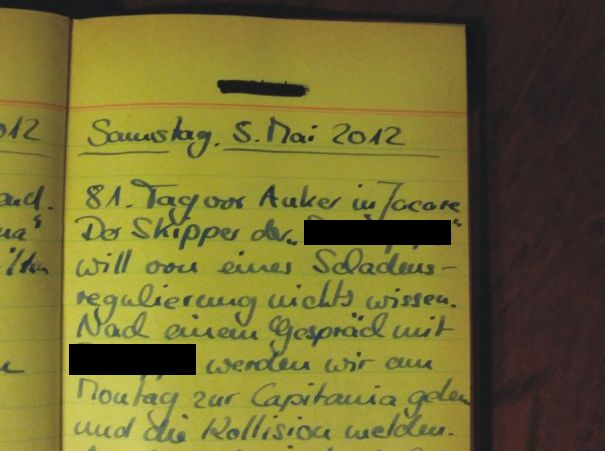 012
Samstag, 5. Mai 2012
81. Tag vor Anker in Jacare
Der Skipper der "
will von einer Schadens-
regulierung nichts wissen.
Nach einem Gespräch mit
werden wir am
Montag zur Capitania gehen
und die Kollision melden.